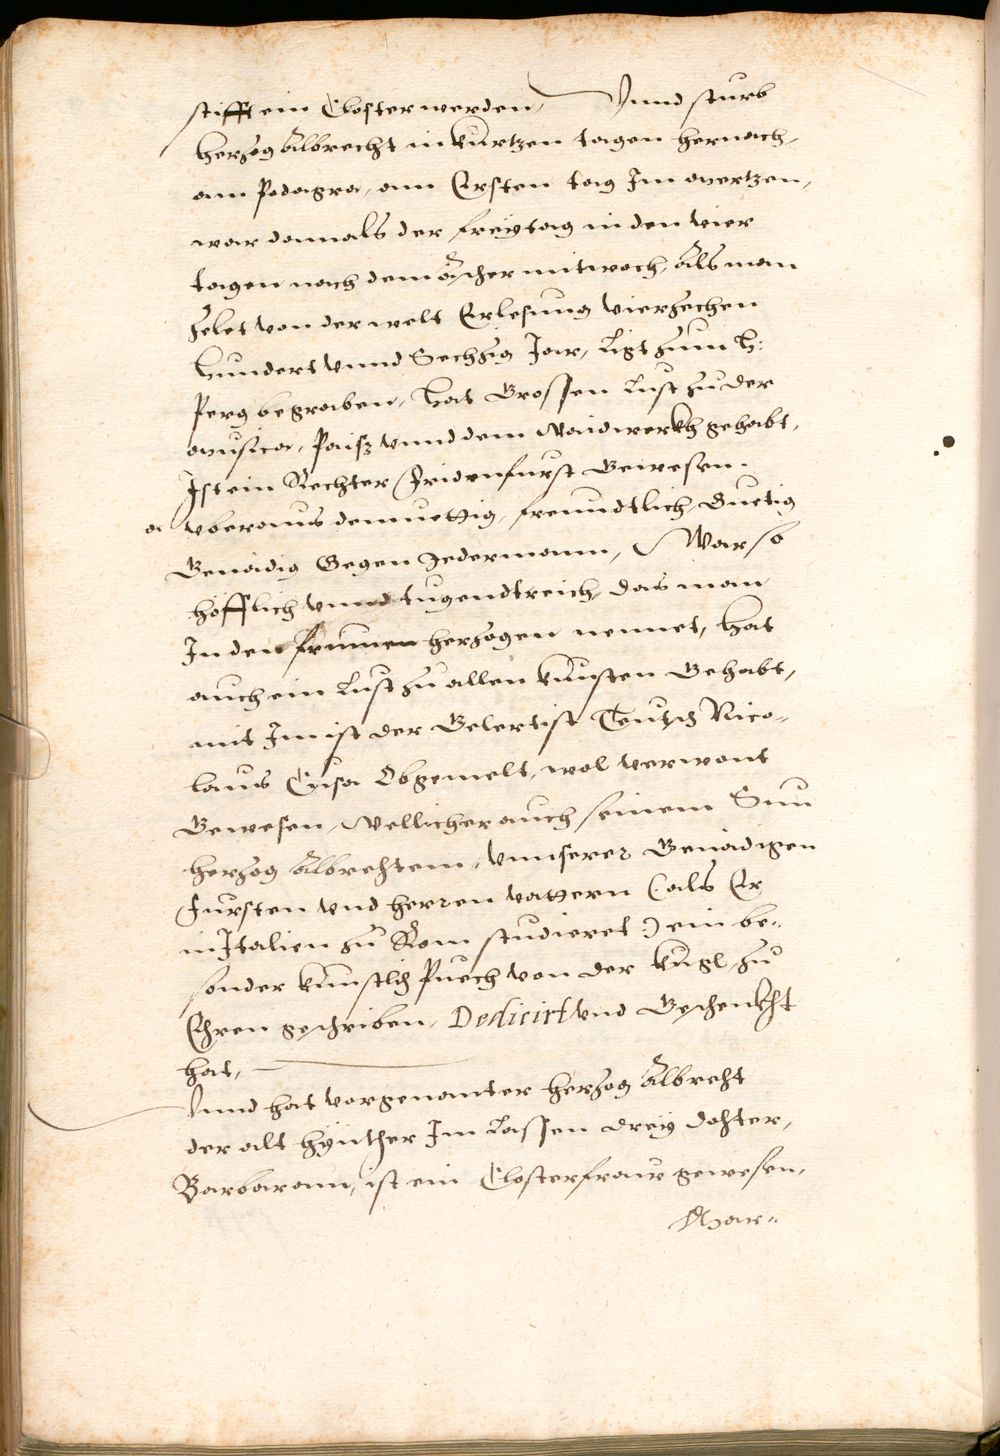 stifft ein Closter werden, Vnnd sturb
herzog Albrecht in kurtzen tagen hernach,
am Podagra, am Ersten tag Im Mertzen,
war damals der freytag in den vier
tagen nach dem Ascher mitwoch, Als man
zelet von der welt Erlesung vierzechen
hundert vnnd Sechzig Jar, Ligt zum H:
Perg begraben, hat Grossen Lust zu der
Musica, Paiß vnnd dem Waidwerkh gehabt,
Ist ein Rechter Fridenfurst Gewesen.
vberaus demuettig, freundtlich, Guetig
Genädig Gegen Jedermann, War so
höfflich vnnd tugendtreich, das man
In den frumen herzogen nennet, hat
auch ein Lust zu allen kunsten Gehabt,
mit Im ist der Gelertist Teutsch Nico-
laus Cusa Obgemelt, wol verwant
Gewesen, Wellicher auch seinem Sun
herzog Albrechtem, vnnserer Genädigen
Fursten vnd herren vattern (als Er
in Italien zu Rom studieret) ein be-
sonder kunstlich Puech von der kugl zu
Ehren geschriben, Dedicirt vnd Geschenkht
hat,
Vnnd hat vorgenanter herzog Albrecht
der alt hynther Im Lassen drey dochter,
Barbaram, ist ein Closterfraw gewesen,
Mar-